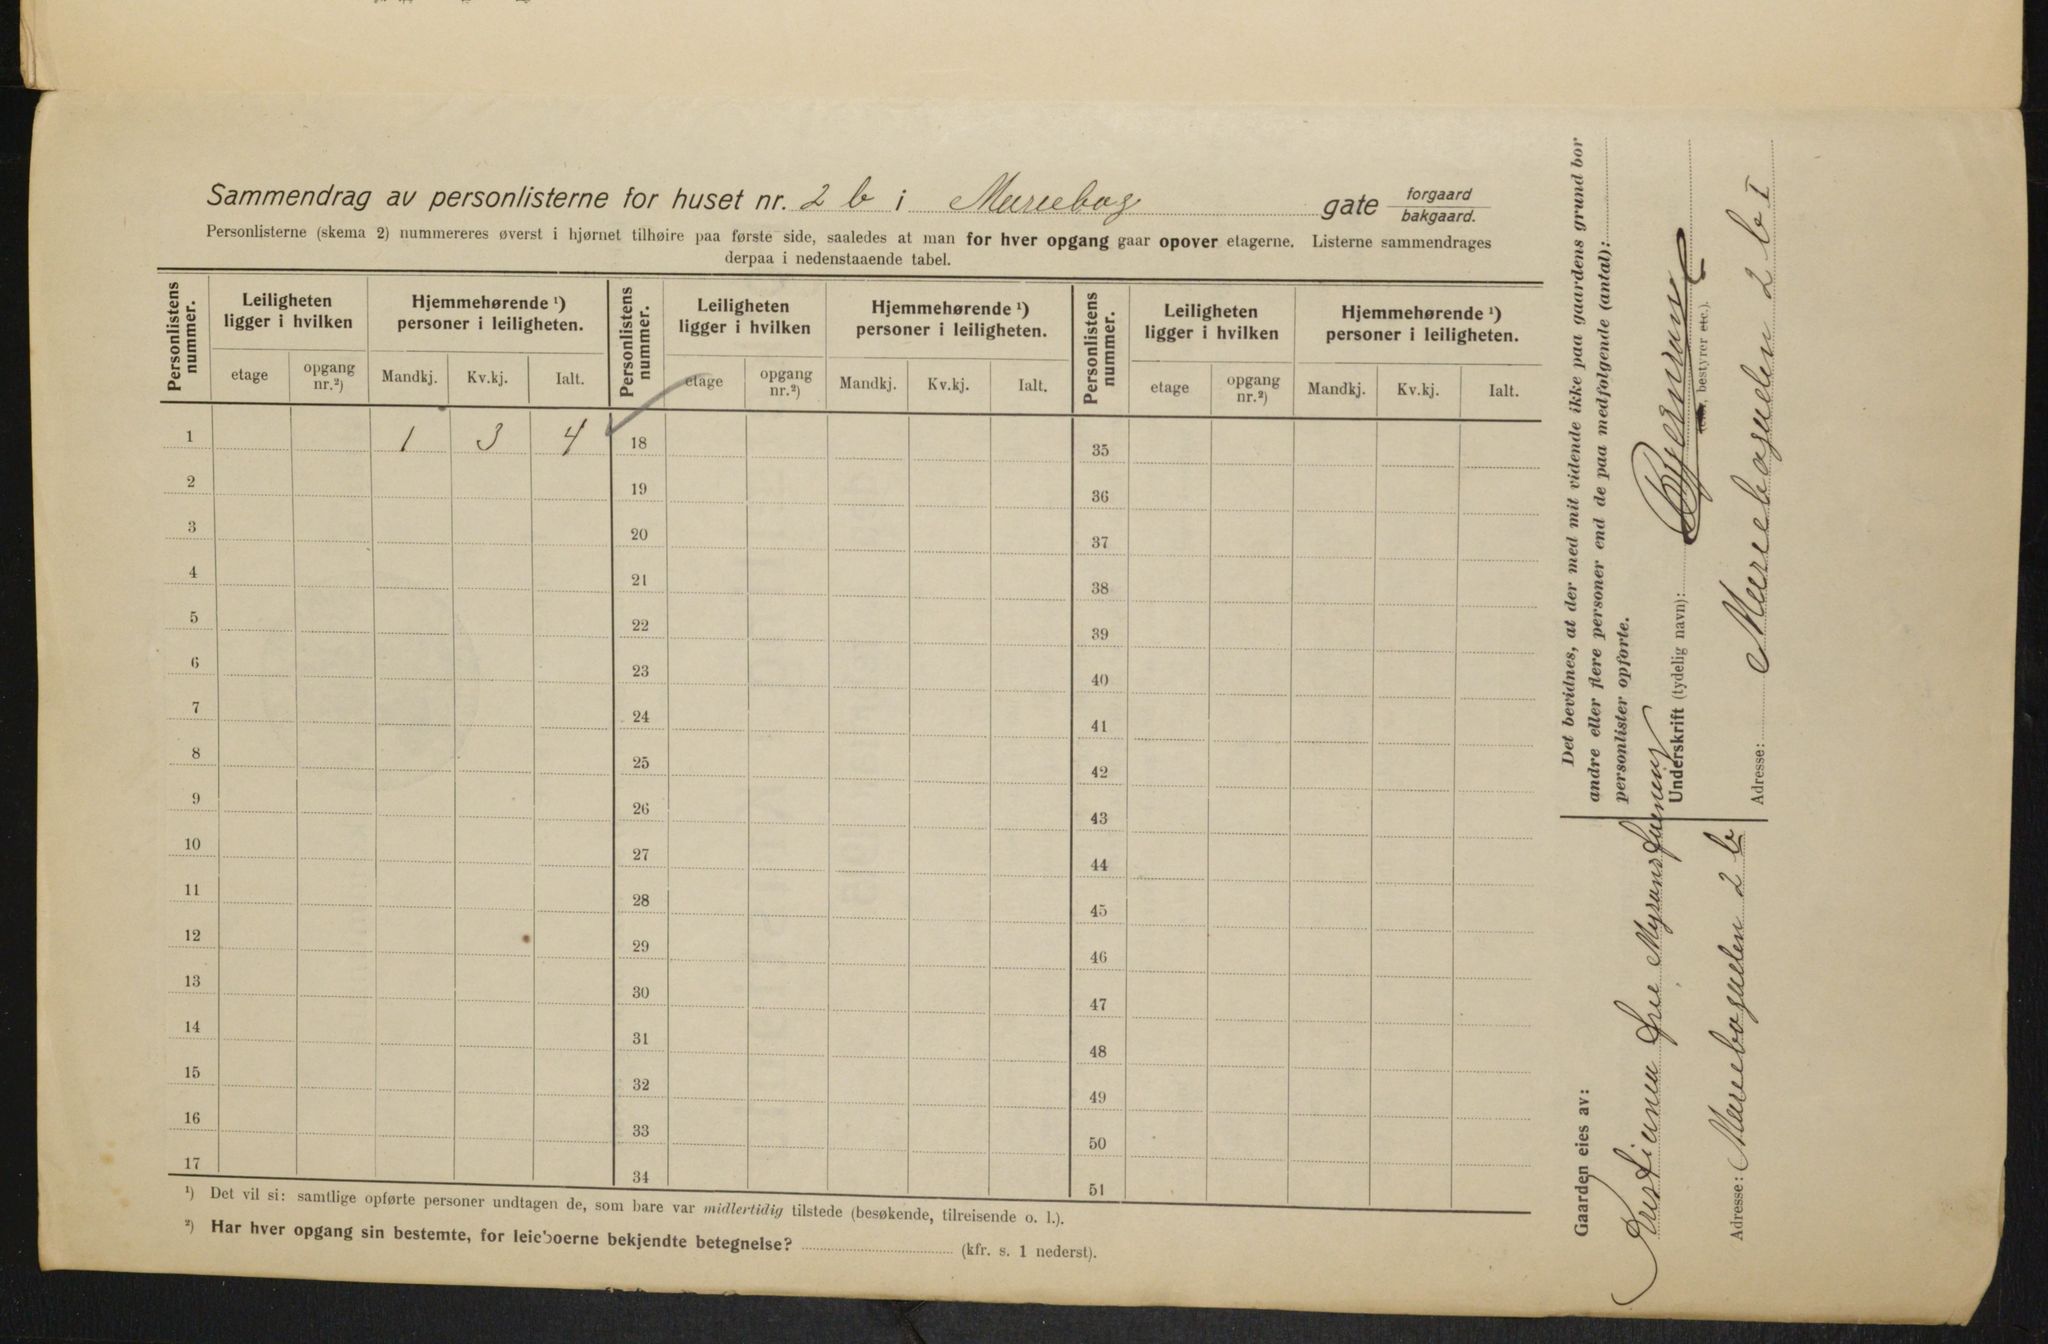 Sammendrag av personlisterne for huset nr. 2 b i Mariebog gate forgaard
bakgaard.
Personlisterne (skema 2) nummereres øverst i hjørnet tilhøire paa første side, saaledes at man for hver opgang gaar opover etagerne. Listerne sammendrages
derpaa i nedenstaaende tabel.
Personlistens nummer. Leiligheten ligger i hvilken Hjemmehørende ¹) personer i leiligheten. Personlistens nummer. Leiligheten ligger i hvilken Hjemmehørende ¹) personer i leiligheten. Personlistens nummer. Leiligheten ligger i hvilken Hjemmehørende ¹) personer i leiligheten.
etage opgang nr.²) Mandkj. Kv.kj. Ialt. etage opgang nr.²) Mandkj. Kv.kj. Ialt. etage opgang nr.²) Mandkj. Kv.kj. Ialt.
1 1 3 4 18 35
2 19 36
3 20 37
4 21 38
5 22 39
6 23 40
7 24 41
8 25 42
9 26 43
10 27 44
11 28 45
12 29 46
13 30 47
14 31 48
15 32 49
16 33 50
17 34 51
¹) Det vil si: samtlige opførte personer undtagen de, som bare var midlertidig tilstede (besøkende, tilreisende o. l.).
²) Har hver opgang sin bestemte, for leieboerne bekjendte betegnelse? (kfr. s. 1 nederst).
Det bevidnes, at der med mit vidende ikke paa gaardens grund bor
andre eller flere personer end de paa medfølgende (antal):
personlister opførte.
Underskrift (tydelig navn):
bestyrer etc.).
Adresse: Mariebogaden 2 b I
Gaarden eies av:
Adresse: Mariebogaden 2 b